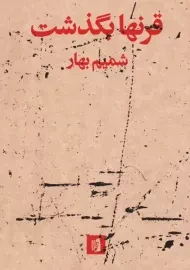 قرنها بگذشت
شمیم بهار